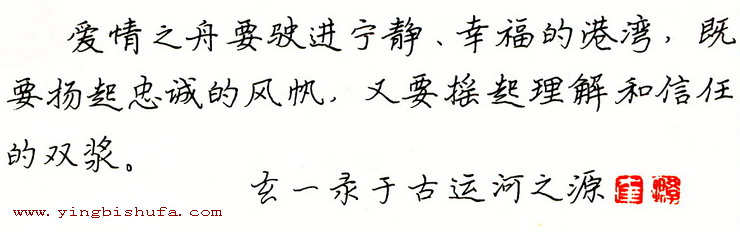 爱情之舟要驶进宁静、幸福的港湾，既
要扬起忠诚的风帆，又要摇起理解和信任
的双浆。
玄一录于古运河之源
www.yingbishufa.com